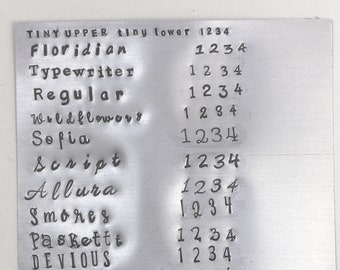 TINY UPPER tiny lower 1234
Floridian 1234
Typewriter 1234
Regular 1234
Wildflowers 1234
Sofia 1234
Script 1234
Allura 1234
Smores 1234
Pasketti 1234
DEVIOUS 1234